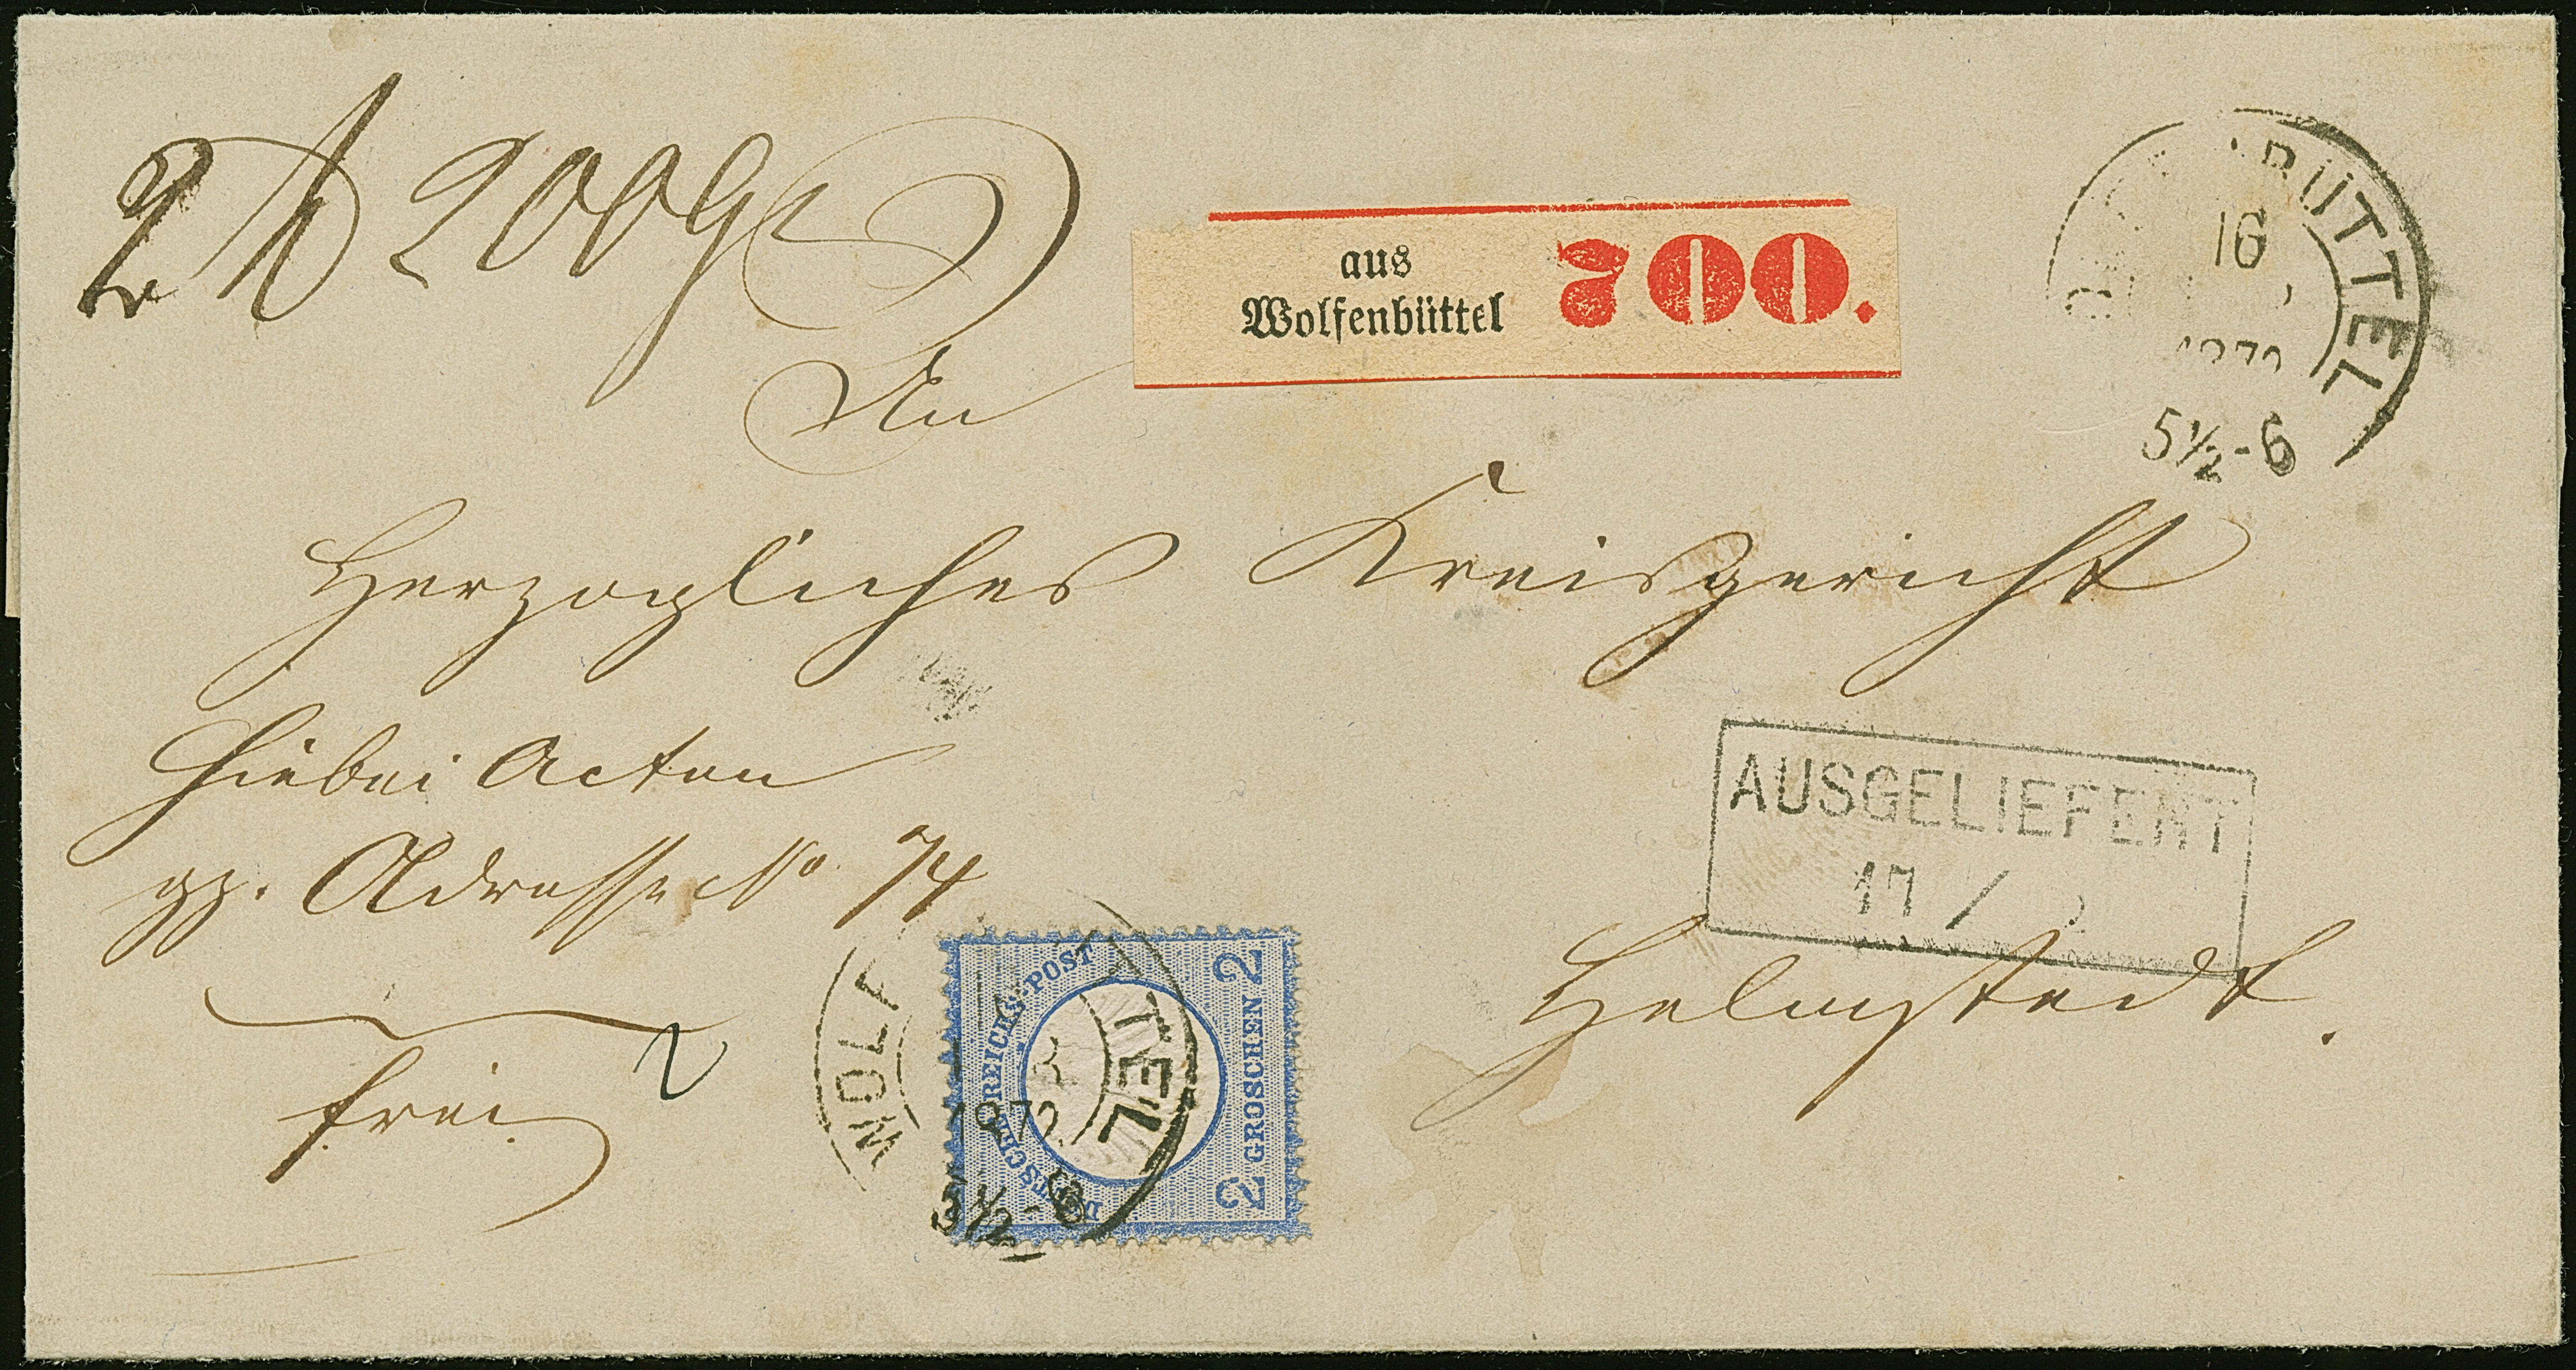 2 ℔ 200 Gr
aus
Wolfenbüttel 700.
BÜTTEL
16
5½-6
An
Herzogliches Kreisgericht
Hiebei Acten
gez. Adresse No 74
AUSGELIEFERT
17 /
Helmstedt.
frei
2
WOLF TEL
1872
5½-6
DEUTSCHE REICHS-POST
2 GROSCHEN 2